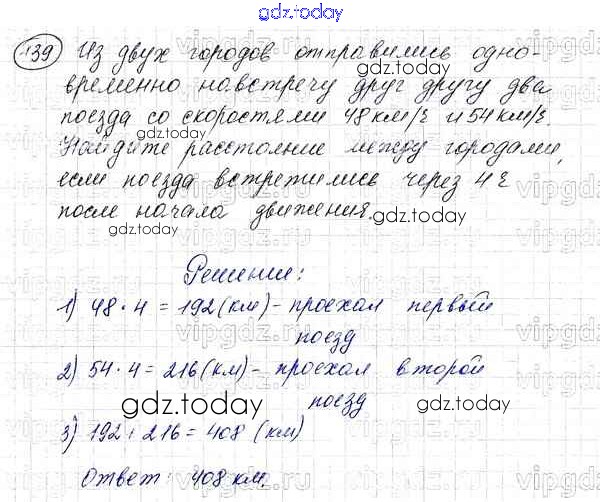 gdz.today
139 Из двух городов отправились одно-
временно навстречу друг другу два
gdz.today
поезда со скоростями 48 км/ч и 54 км/ч.
gdz.today
Найдите расстояние между городами,
если поезда встретились через 4 ч
после начала движения.
gdz.today
Решение:
1) 48 · 4 = 192 (км) - проехал первый
поезд
gdz.today
2) 54 · 4 = 216 (км) - проехал второй
поезд
gdz.today
3) 192 + 216 = 408 (км)
Ответ: 408 км.
gdz.today